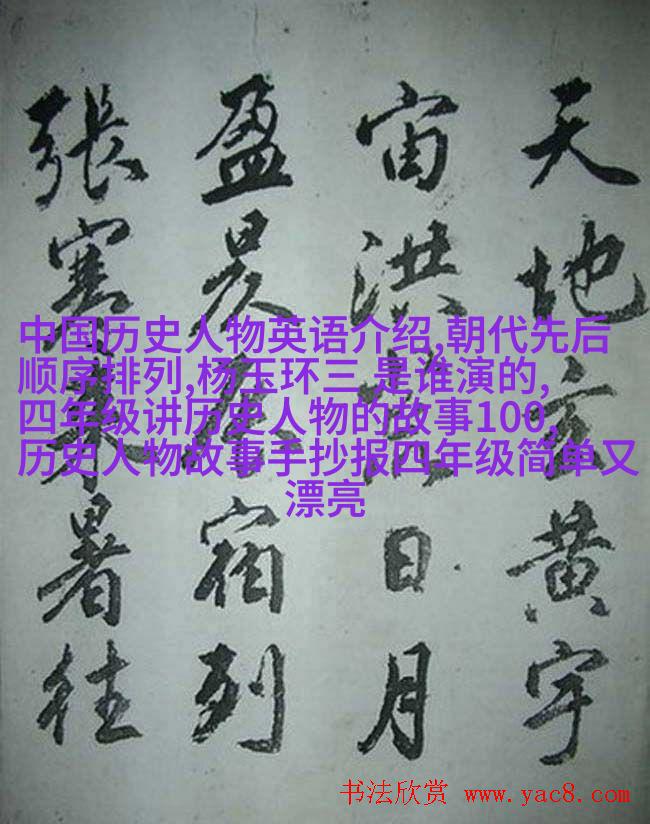 天地玄黄宇
宙洪荒日月
盈昃辰宿列
張寒来暑往
中国历史人物英语介绍,朝代先后
顺序排列,杨玉环三 是谁演的,
四年级讲历史人物的故事100,
历史人物故事手抄报四年级简单又
漂亮
书法欣赏 www.yac8.com